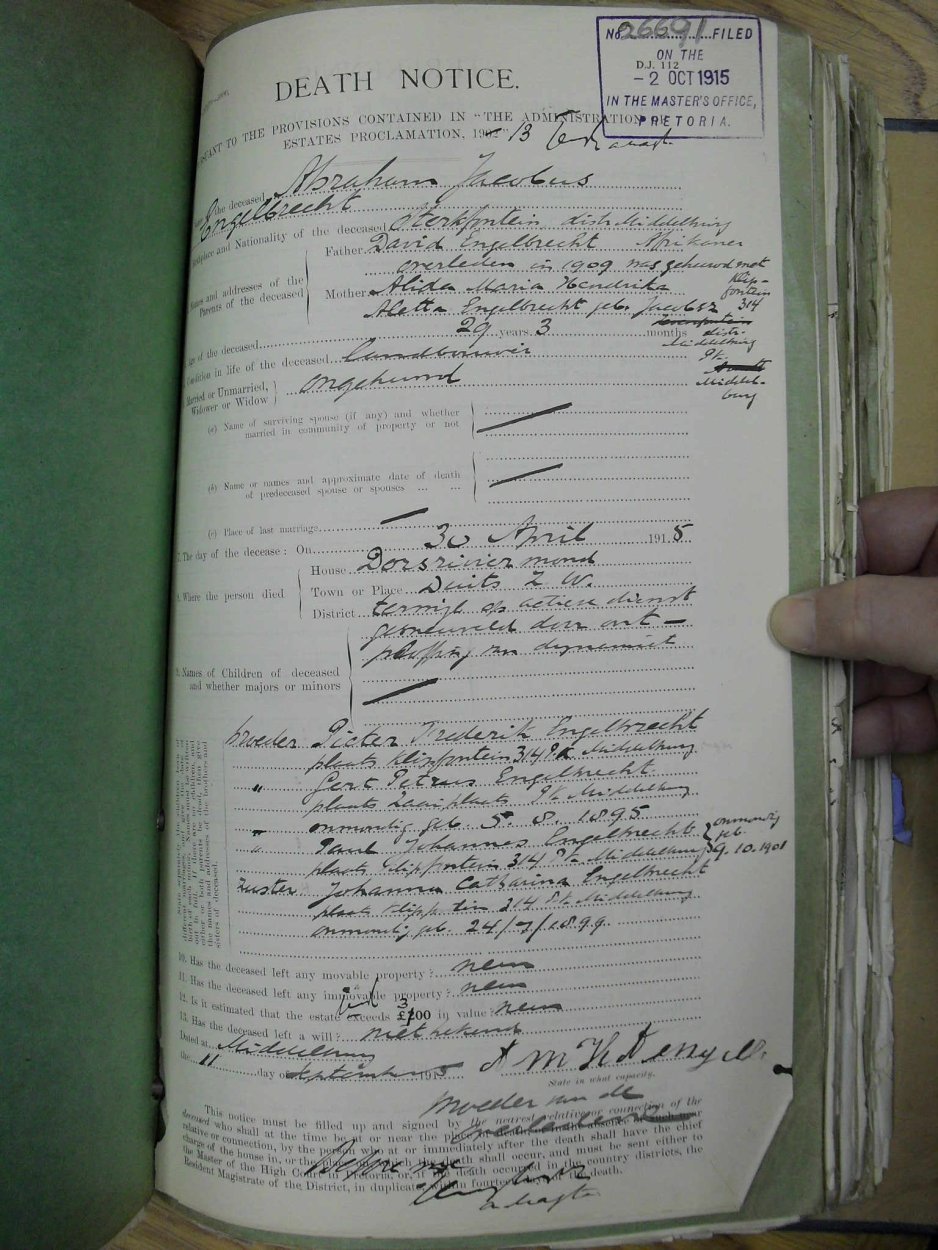 No 26691 FILED
ON THE
D.J. 112
- 2 OCT 1915
IN THE MASTER'S OFFICE,
PRETORIA.
DEATH NOTICE.
TO THE PROVISIONS CONTAINED IN "THE ADMINISTRATION
ESTATES PROCLAMATION, 1902" 13
the deceased Abraham Jacobus
Engelbrecht
and Nationality of the deceased Sterkfontein distr Middelburg
Names and addresses of the Parents of the deceased
Father David Engelbrecht Afrikaner
overleden in 1909 was gehuwd met
Mother Alida Maria Hendrika
Aletta Engelbrecht geb. Jacobsz
Klip-
fontein
314
distr.
Middelburg
Pk.
Middel-
burg
Age of the deceased 29 years 3 months
Condition in life of the deceased Landbouwer
Married or Unmarried, Widower or Widow ongehuwd
(a) Name of surviving spouse (if any) and whether
married in community of property or not
(b) Name or names and approximate date of death
of predeceased spouse or spouses ... ...
(c) Place of last marriage
7. The day of the decease: On 30 April 1915
8. Where the person died
House Dorsrivier mond
Town or Place Duits Z W.
District terwijl op actieve dienst
gesneuveld door ont-
ploffing van dynamiet
9. Names of Children of deceased
and whether majors or minors
broeder Pieter Frederik Engelbrecht
plaats Klipfontein 314 Pk Middelburg
" Gert Petrus Engelbrecht
plaats Pk Middelburg
onmondig geb. 5. 8. 1895
" Paul Johannes Engelbrecht
plaats Klipfontein 314 Pk Middelburg
onmondig
geb.
9. 10. 1901
zuster Johanna Catharina Engelbrecht
plaats Klipfontein 314 Pk Middelburg
onmondig geb. 24/7/1899.
10. Has the deceased left any movable property? neen
11. Has the deceased left any immovable property? neen
12. Is it estimated that the estate exceeds £300 in value? neen
13. Has the deceased left a will? niet bekend
Dated at Middelburg
the 11 day of September 1915
State in what capacity.
Moeder van de
overledene
This notice must be filled up and signed by the nearest relative or connection of the
deceased who shall at the time be at or near the place of death
relative or connection, by the person who at or immediately after the death shall have the chief
charge of the house in, or the place on which the death shall occur, and must be sent either to
the Master of the High Court in Pretoria, or, if the death occurred in the country districts, the
Resident Magistrate of the District, in duplicate, within fourteen days of the death.
Before me